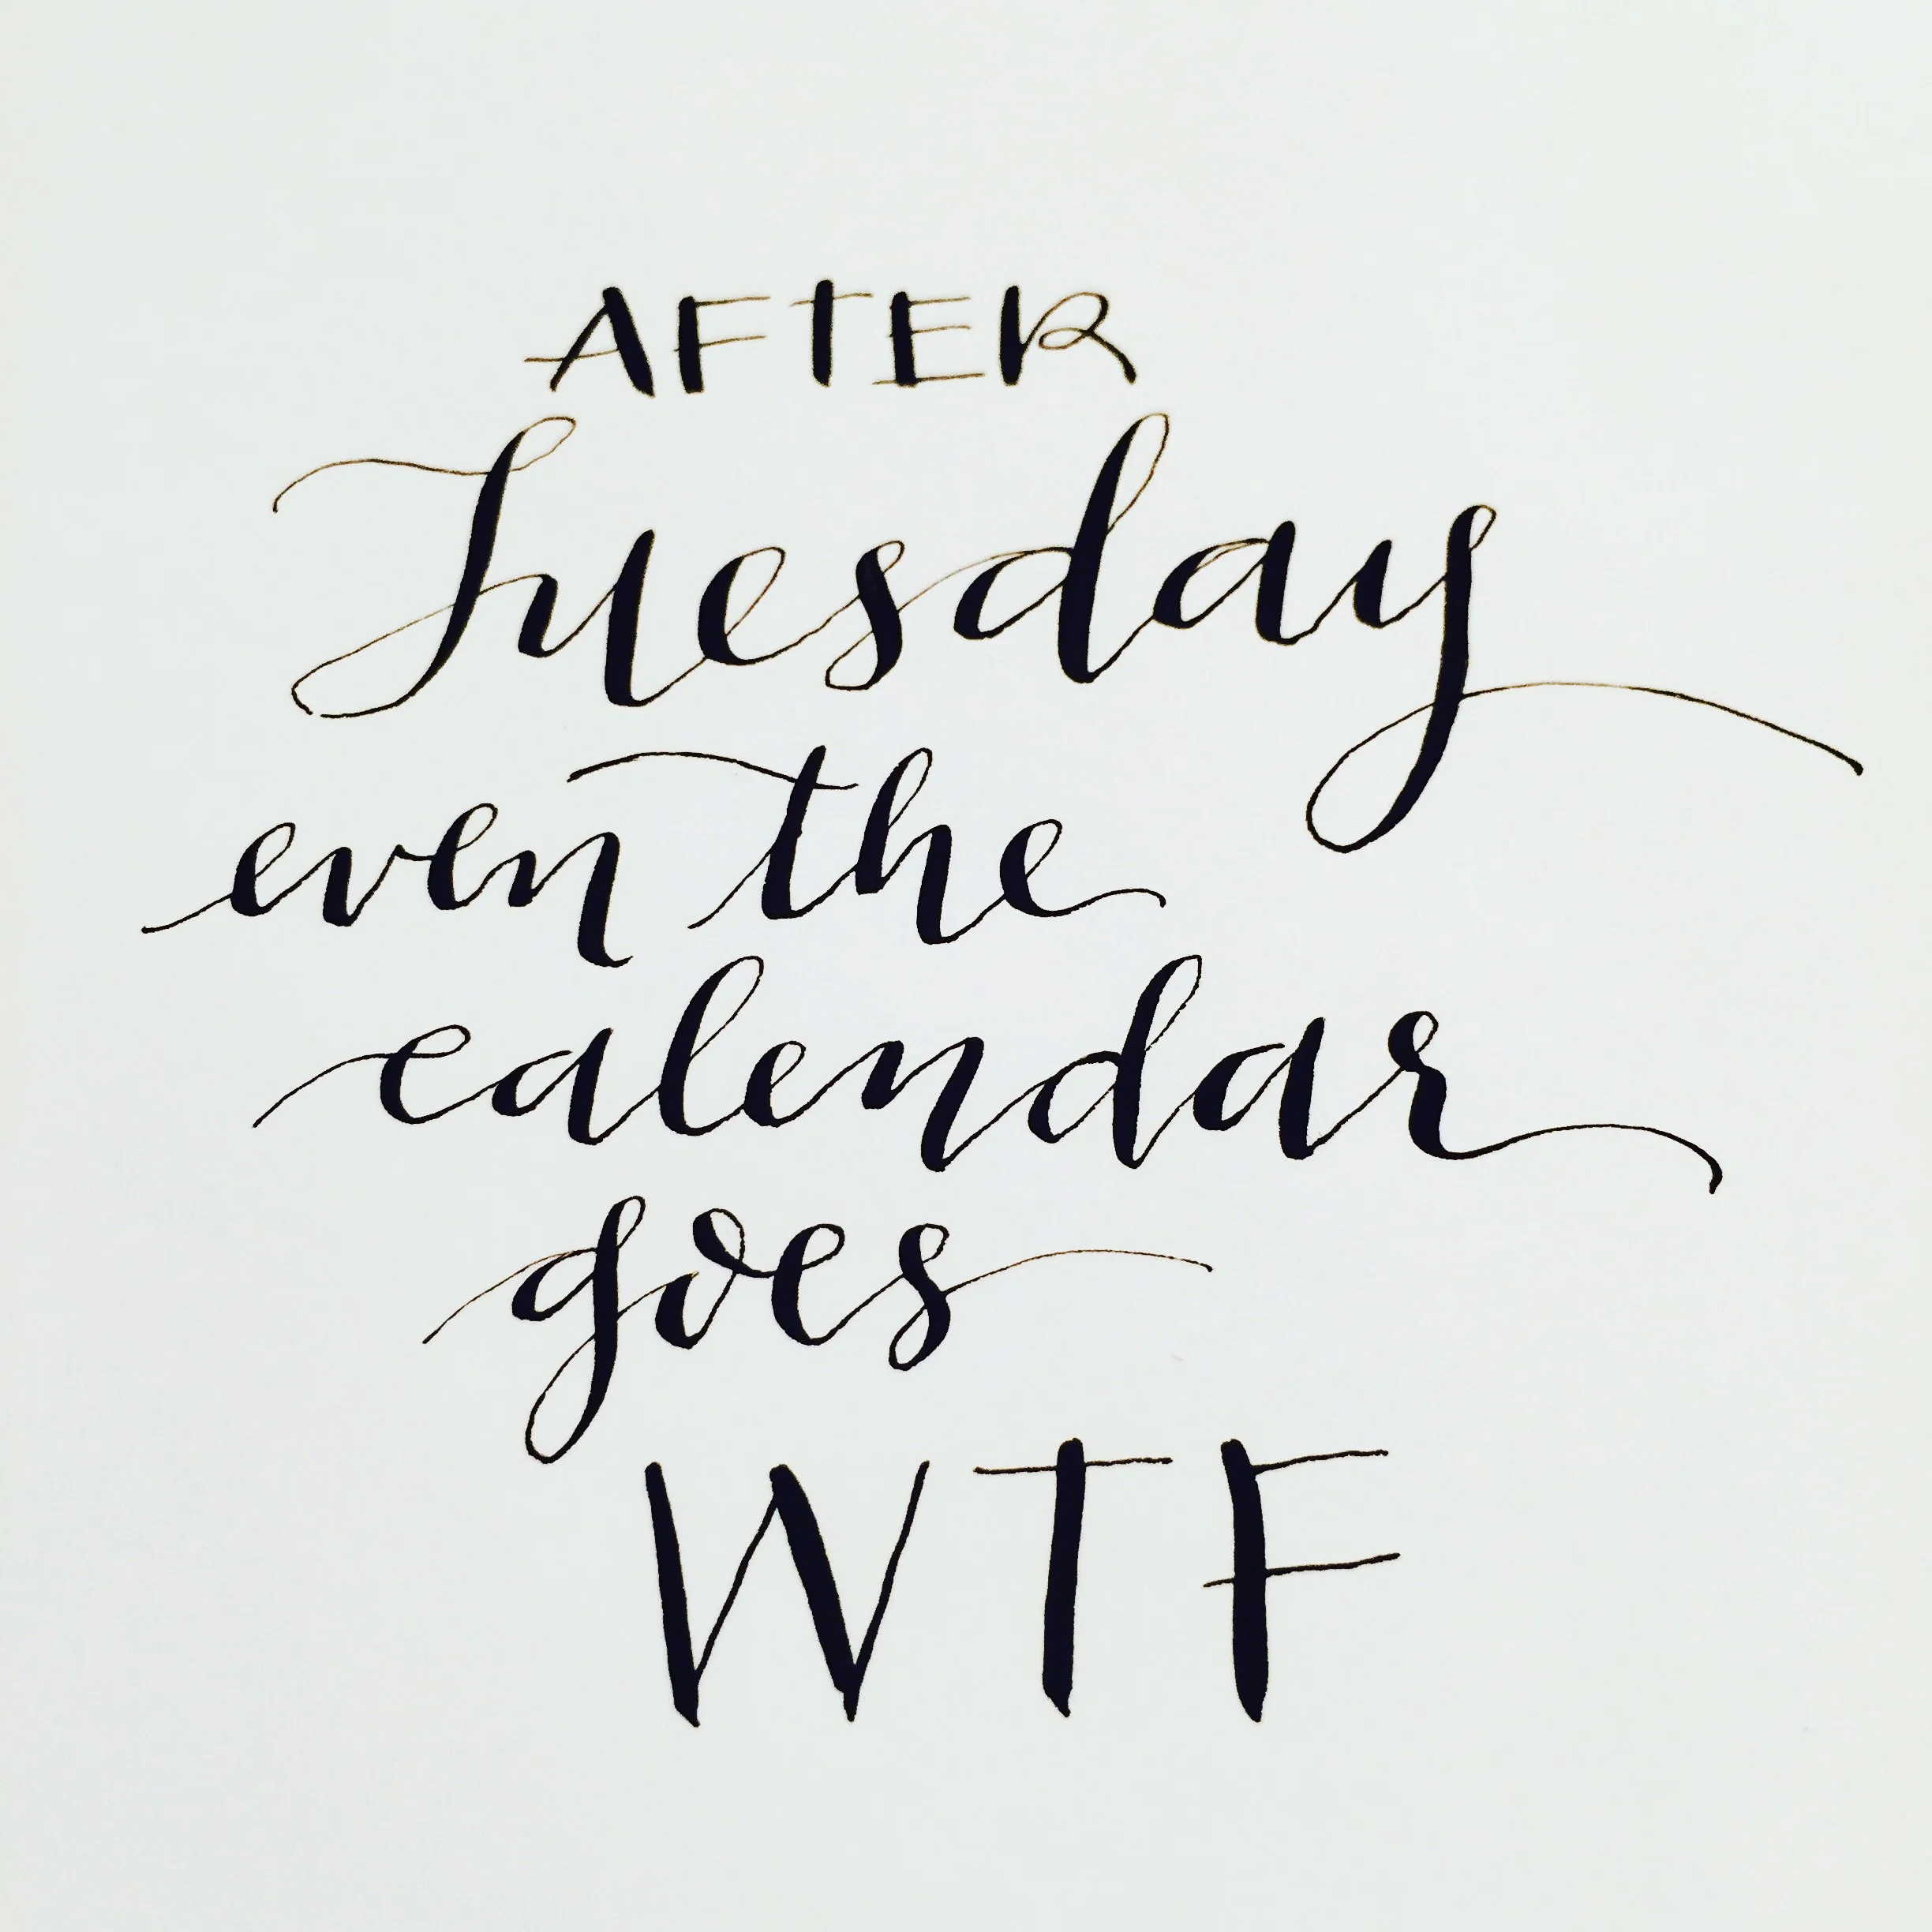 AFTER
Tuesday
even the
calendar
goes
WTF